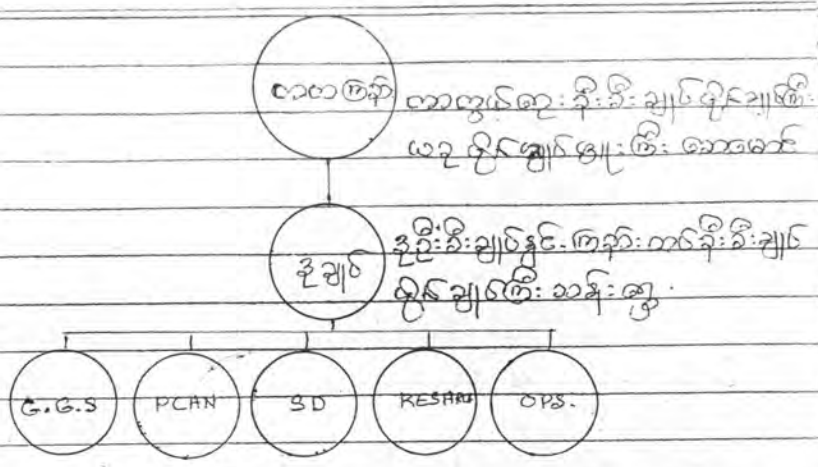 ကာကကြည်း
ကာကွယ်ရေး ဦးစီးချုပ် ဗိုလ်ချုပ်ကြီး
ယခု ဗိုလ်ချုပ်မှူးကြီး စောမောင်
ဒုချုပ်
ဒုဦးစီးချုပ်နှင့် ကြည်းတပ်ဦးစီးချုပ်
ဗိုလ်ချုပ်ကြီး သန်းရွှေ
G.G.S PLAN SD OPS.